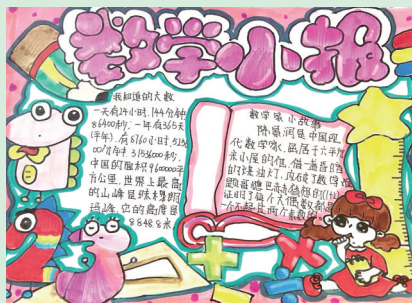 数学小报
我知道的大数
一天有24小时.1440分钟
86400秒.一年有365天
(平年).有8760小时,5256
00分钟.31536000秒.
中国的面积9600000平
方公里.世界上最高
的山峰是珠穆朗
玛峰.它的高度是
8848.8米
数学家小故事
陈景润是中国现
代数学家.屈居于六平方
米小屋的他,借一盏昏暗
的煤油灯,攻破了数学难
题哥德巴赫猜想的(1+2)
证明了每个大偶数都是
一个不超过两个素数的